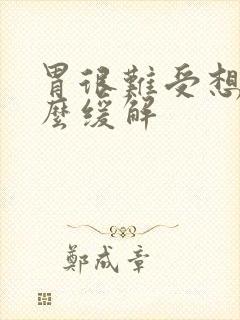 胃很難受想
麼緩解
鄭成章